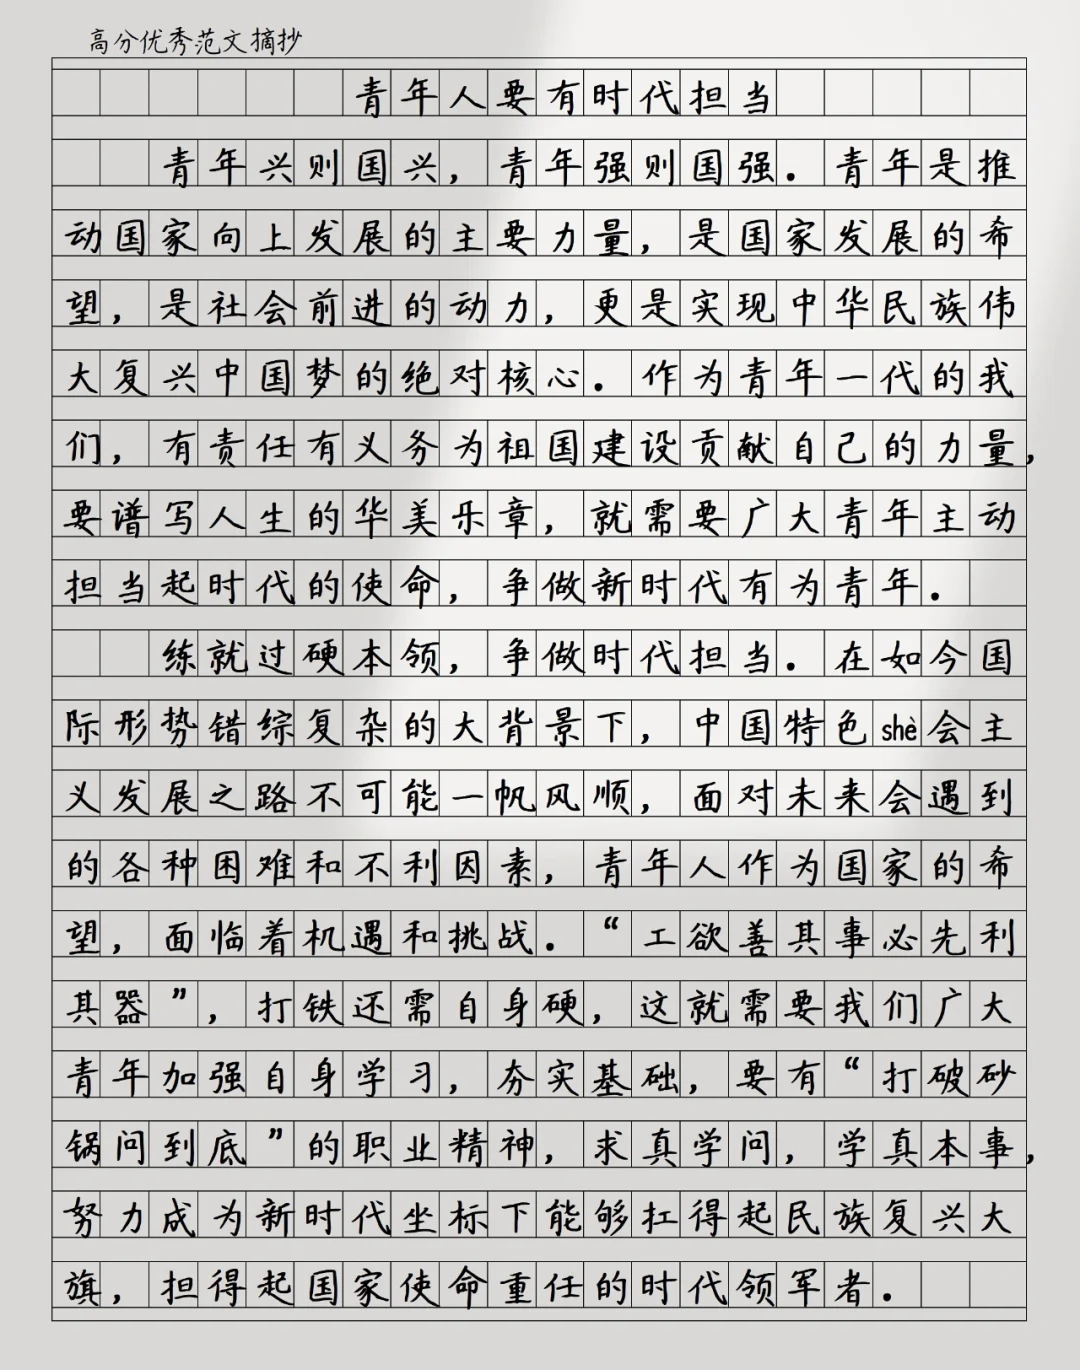 高分优秀范文摘抄
青年人要有时代担当
青年兴则国兴，青年强则国强．青年是推
动国家向上发展的主要力量，是国家发展的希
望，是社会前进的动力，更是实现中华民族伟
大复兴中国梦的绝对核心．作为青年一代的我
们，有责任有义务为祖国建设贡献自己的力量，
要谱写人生的华美乐章，就需要广大青年主动
担当起时代的使命，争做新时代有为青年．
练就过硬本领，争做时代担当．在如今国
际形势错综复杂的大背景下，中国特色shè会主
义发展之路不可能一帆风顺，面对未来会遇到
的各种困难和不利因素，青年人作为国家的希
望，面临着机遇和挑战．“工欲善其事必先利
其器”，打铁还需自身硬，这就需要我们广大
青年加强自身学习，夯实基础，要有“打破砂
锅问到底”的职业精神，求真学问，学真本事，
努力成为新时代坐标下能够扛得起民族复兴大
旗，担得起国家使命重任的时代领军者．